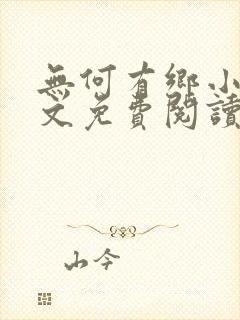 無何有鄉小
文免費閱讀
山今